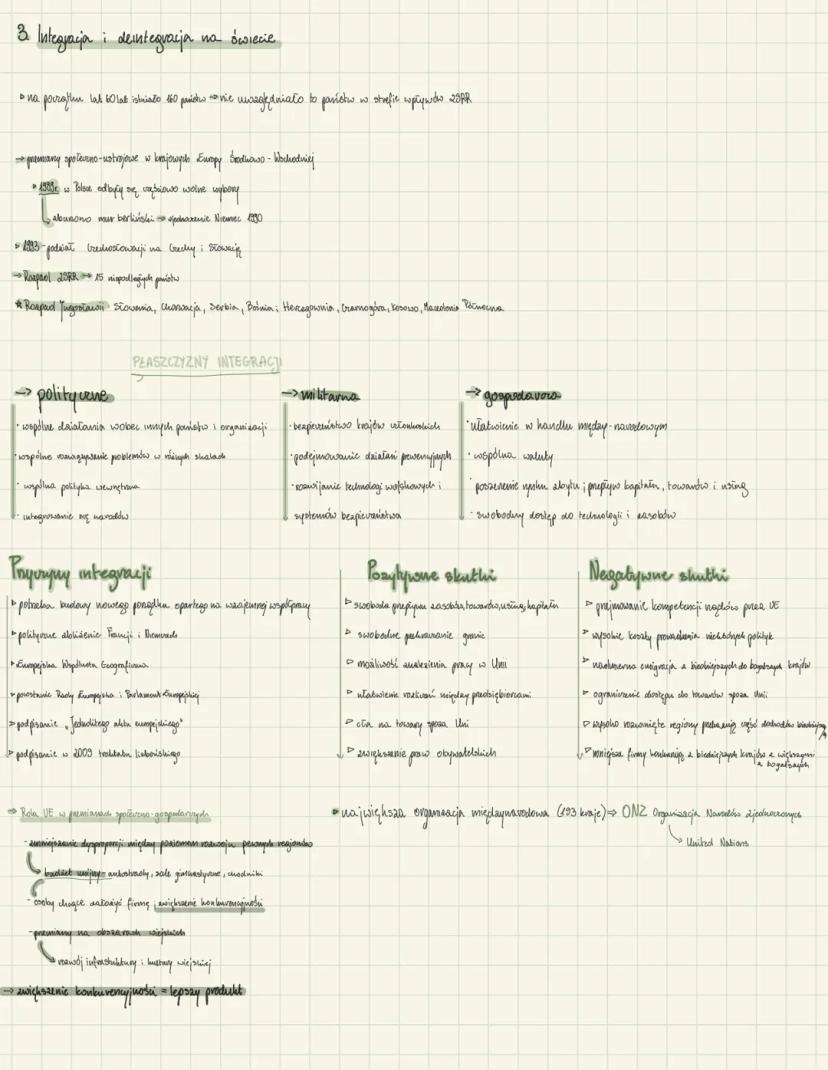 3. Integracja i deintegracja na świecie
na początku lat 60 lat istniało 160 państw ⇒ nie uwzględniało to państw w strefie wpływów ZSRR
→ przemiany społeczno-ustrojowe w krajowych Europy Środkowo-Wschodniej
1989r. w Polsce odbyły się częściowo wolne wybory
zburzono mur berliński ⇒ zjednoczenie Niemiec 1990
1993-podział Czechosłowacji na Czechy i Słowację
→ Rozpad ZSRR → 15 niepodległych państw
★ Rozpad Jugosławii Słowenia, Chorwacja, Serbia, Bośnia i Hercegownia, Czarnogóra, Kosowo, Macedonia Północna
PŁASZCZYZNY INTEGRACJI
→ polityczne
· wspólne działania wobec innych państw i organizacji
· wspólne rozwiązywanie problemów w różnych skalach
· wspólna polityka wewnętrzna
· integrowanie się narodów
→ militarna
· bezpieczeństwo krajów członkoskich
· podejmowanie działań prewencyjnych
· rozwijanie technologi wojskowych i
systemów bezpieczeństwa
→ gospodarcza
· ułatwienie w handlu między-narodowym
· wspólna waluty
· poszerzenie rynku zbytu; przepływ kapitału, towarów i usług
· swobodny dostęp do technologii i zasobów
Przyczyny integracji
potrzeba budowy nowego porządku opartego na wzajemnej współpracy
polityczne zbliżenie Francji i Niemiec
Europejska Wspólnota Gospodarcza
powstanie Rady Europejska i Parlament Europejskiej
podpisanie „Jednolitego aktu europejskiego"
podpisanie w 2009 traktatu lizbońskiego
Pozytywne skutki
swoboda przepływu zasobów, towarów, usług, kapitału
swobodne przekraczanie granic
możliwość znalezienia pracy w Unii
ułatwienie rozliczeń między przedsiębiorcami
cła na towary spoza Uni
zwiększenie praw obywatelskich
Negatywne skutki
przejmowanie kompetencji rządów przez UE
wysokie koszty prowadzenia niektórych polityk
nadmierna emigracja z biedniejszych do bogatszych krajów
ograniczenie dostępu do towarów spoza Unii
wysoko rozwinięte regiony przekazują część dochodów biedniejszym
mniejsze firmy konkurują z biedniejszych krajów z większymi
z bogatszych
⇒ Rola UE w przemianach społeczno-gospodarczych
- zmniejszanie dysproporcji między poziomem rozwoju pewnych regionów
budżet unijny- autostrady, sale gimnastyczne, chodniki
- osoby chcące założyć firmę zwiększenie konkurencyjności
- przemiany na obszarach wiejskich
rozwój infrastruktury i kultury wiejskiej
→ zwiększenie konkurencyjności = lepszy produkt
największa organizacja międzynarodowa (193 kraje) ⇒ ONZ Organizacja Narodów Zjednoczonych
United Nations